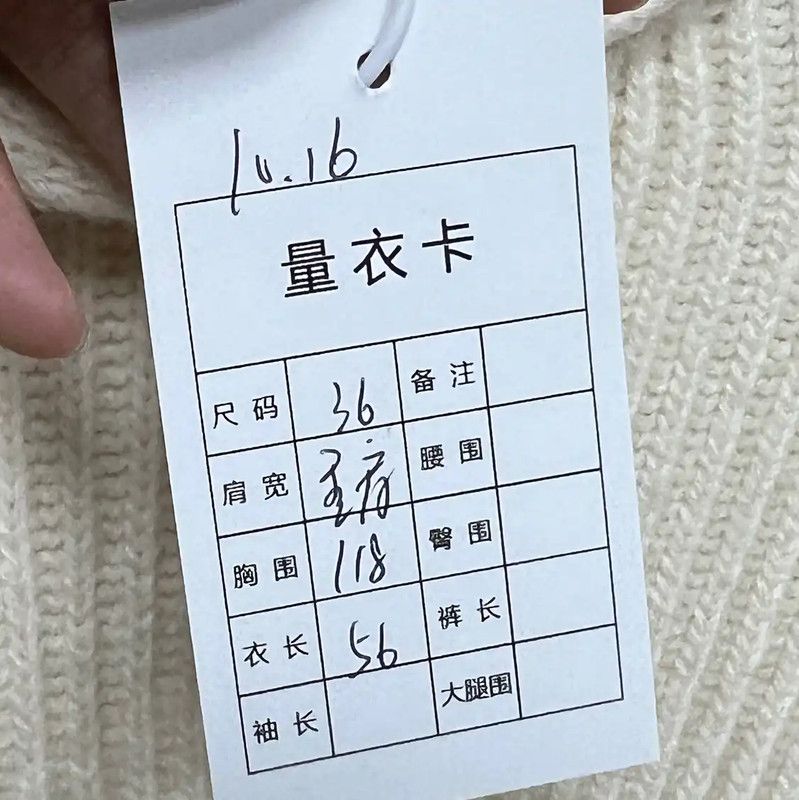 10.16
量衣卡
尺码 36 备注
肩宽 腰围
胸围 118 臀围
衣长 56 裤长
袖长 大腿围